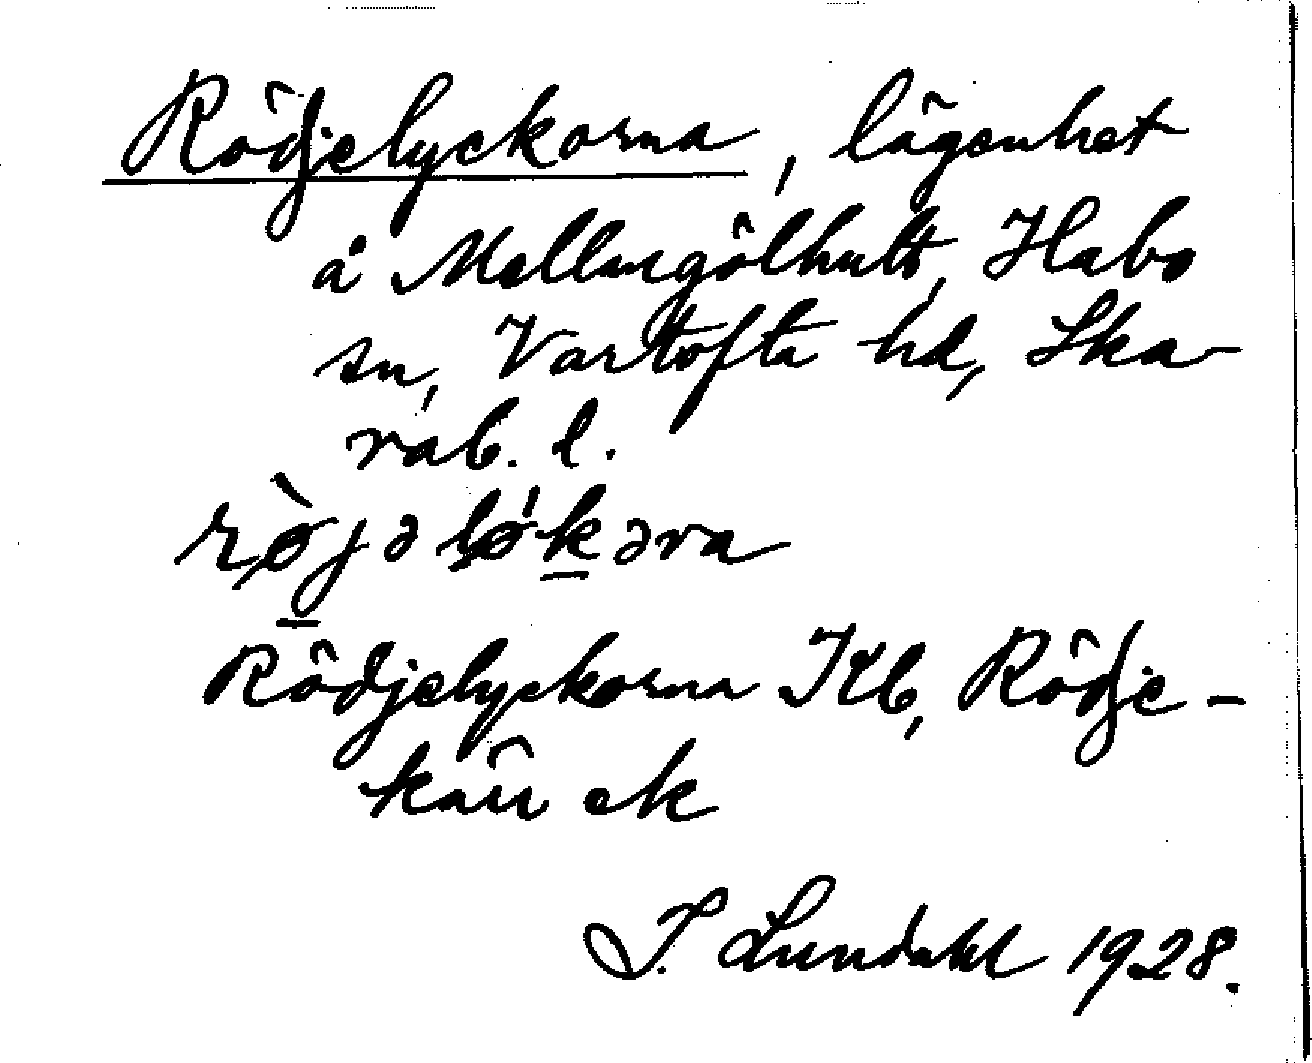 Rödjelyckorna, lägenhet
å Mellangölhult, Habo
sn, Vartofta hd, Ska-
rab. l.
Rödjelyckorna JKb, Rödje-
kärr ek
I. Lundahl 1928.